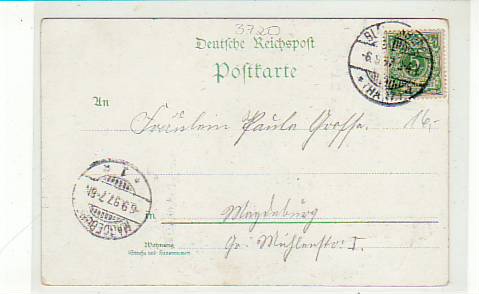 3720
Deutsche Reichspost
Postkarte
An
Fräulein Paula Grosse.
16,-
in Magdeburg
Gr. Mühlenstr. I.
Wohnung
(Straße und Hausnummer)
-6.9.97
(HARZ)
1
-6.9.97.7-8N.
MAGDEBURG
5